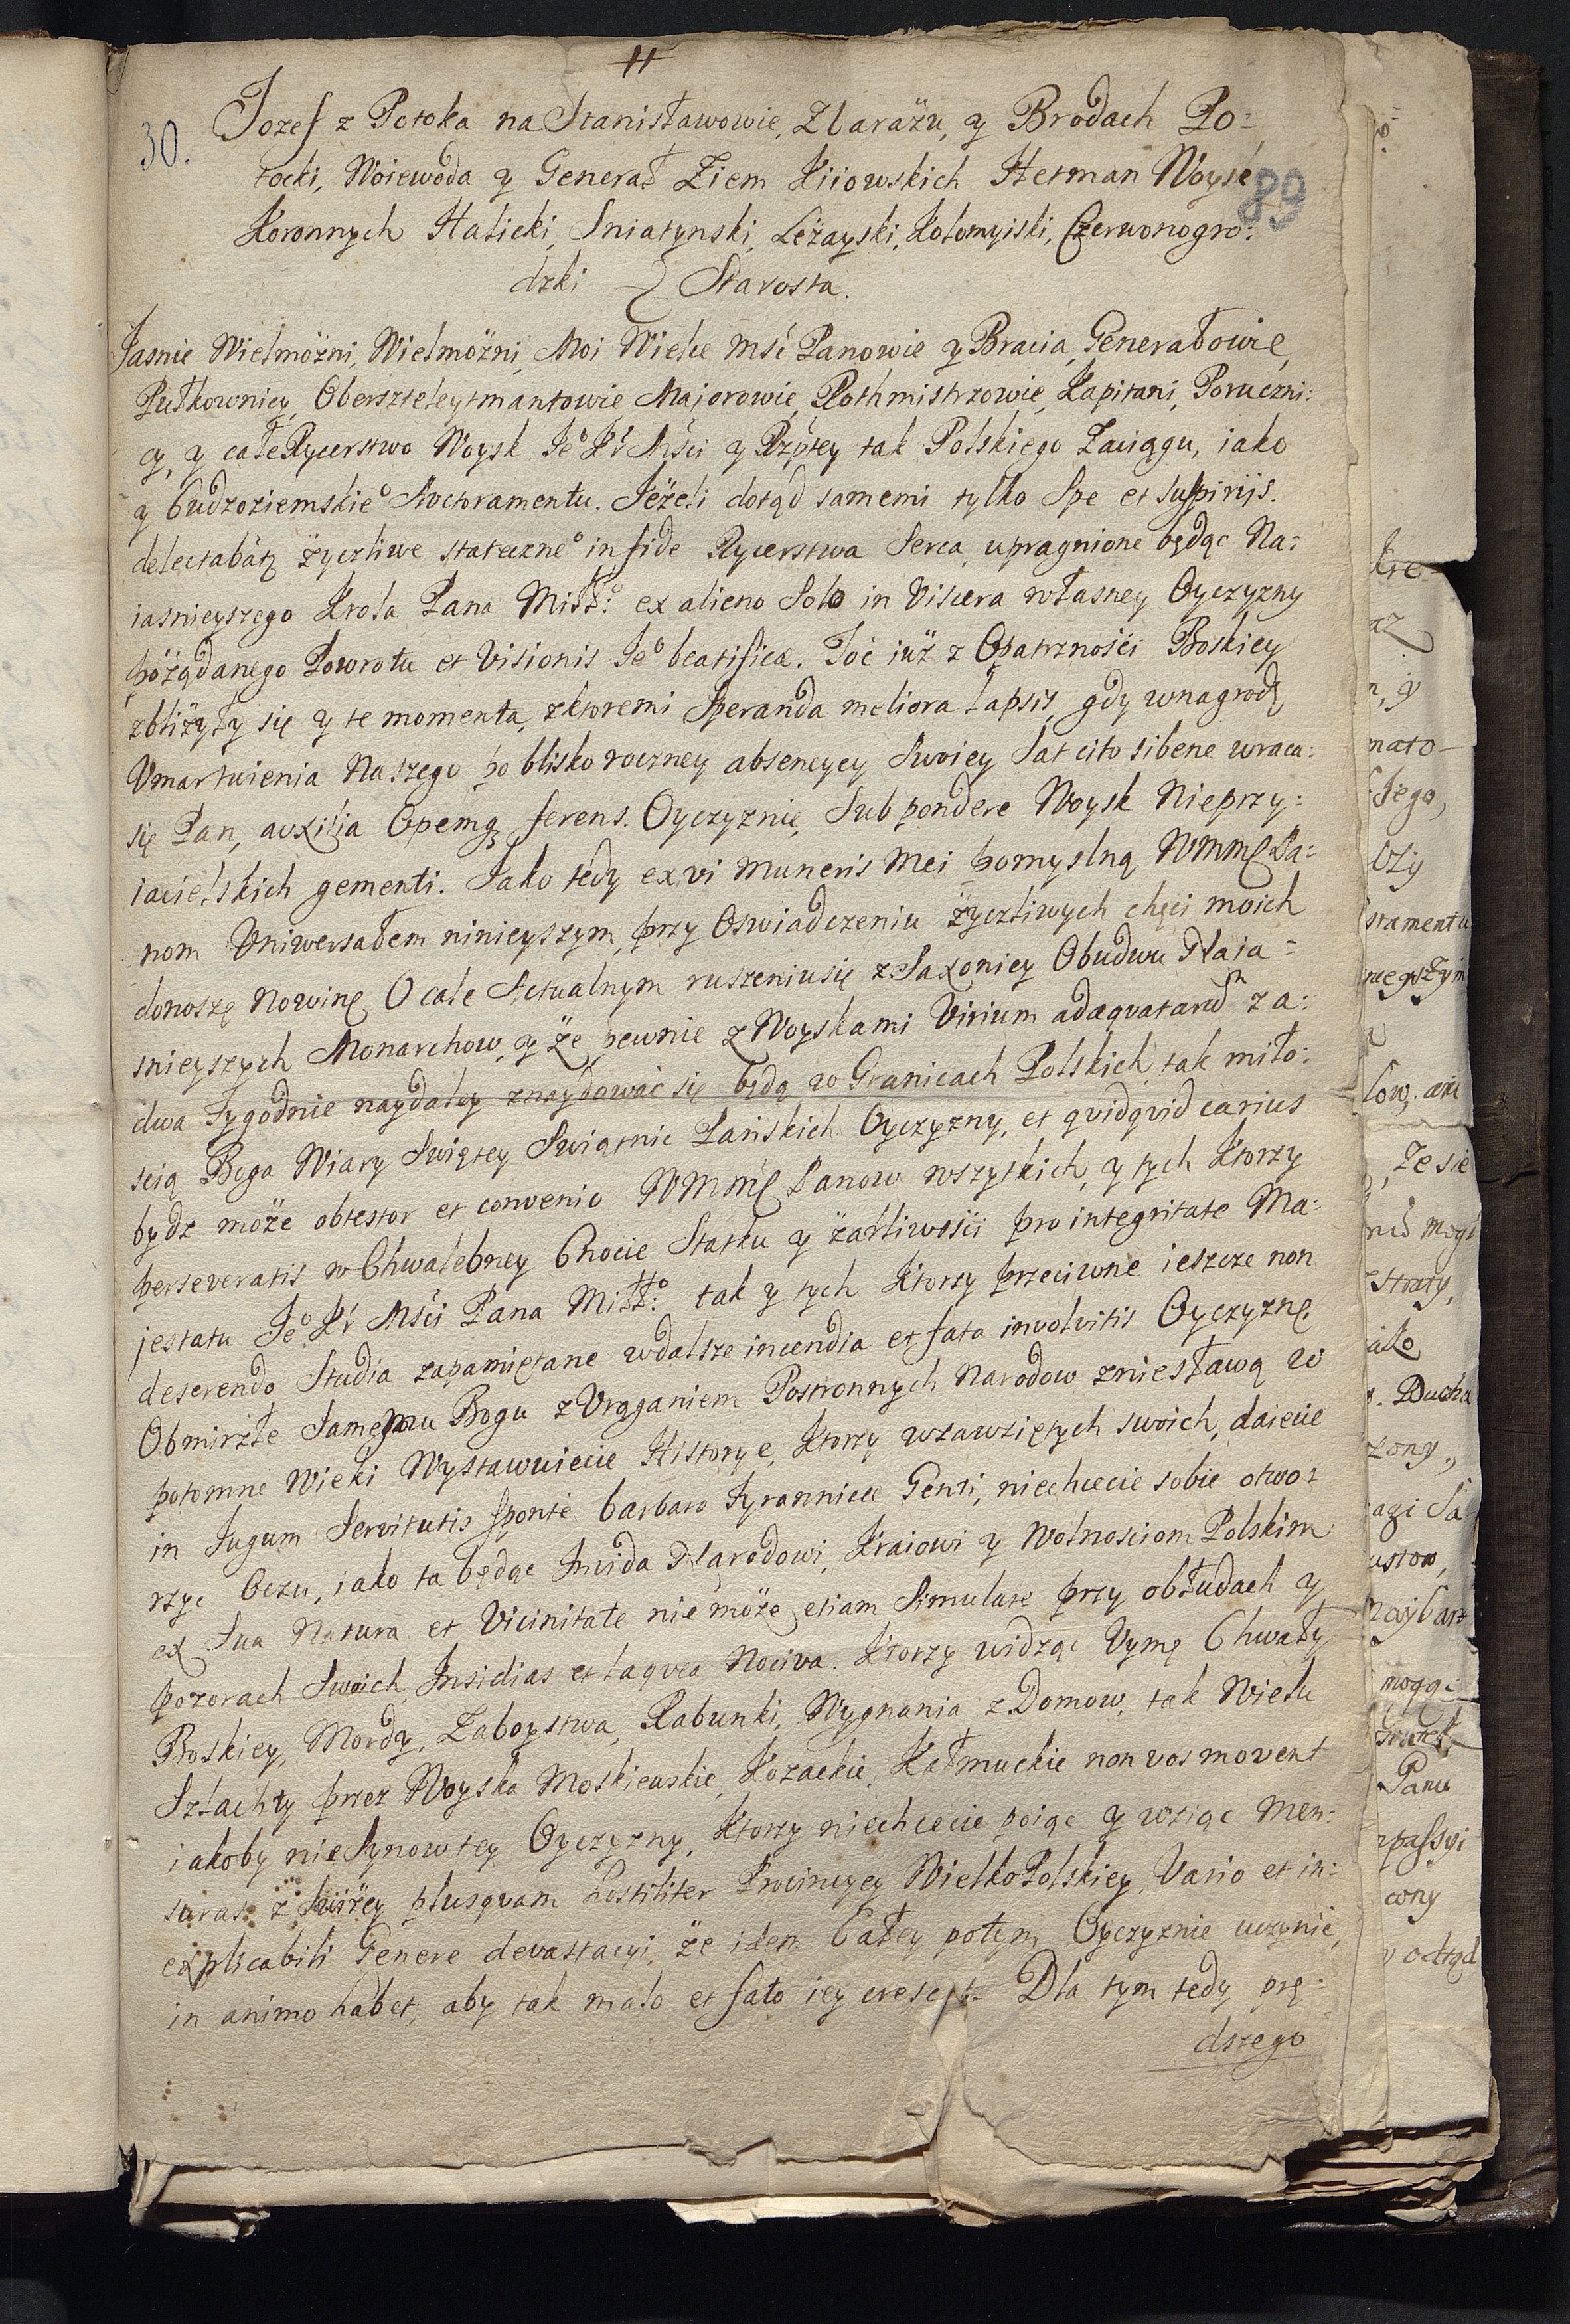 30.
89
Jozef z Potoka na Stanisławowie, Zbarażu, y Brodach Po:
tocki, Woiewoda y Generał Ziem Kiiowskich Hetman Woysk
Koronnych Halicki, Sniatynski, Leżayski, Kołomyiski, Czerwonogro:
dzki Starosta.
Jasnie Wielmożni, Wielmożni, Moi Wielce Mści Panowie y Bracia, Generałowie,
Pułkownicy, Oberszteleytmantowie Majorowie, Rothmistrzowie, Kapitani, Poruczni:
cy, y całe Rycerstwo Woysk Je° Kr Mści y Rzptey tak Polskiego Zaciągu, iako
y Cudzoziemskie° Autoramentu. Jeżeli dotąd samemi tylko Spe et suspirijs.
delectabatz życzliwe stateczne° in fide Rycerstwa Serca, upragnione będąc Na:
iasnieyszego Krola Pana Miłł°: ex alieno Solo in Viscera własney Oyczyzny
pożądanego Powrotu et Visionis Je° beatificæ. Toć iuż z Opatrznośći Boskiey
zbliżyły się y te momenta, z ktoremi Speranda meliora lapsis, gdy w nagrodę
Vmartwienia Naszego po blisko roczney absencyey Swoiey Sat cito si bene wraca:
się Pan, auxilia Opemq ferens. Oyczyznie, Sub pondere Woysk Nieprzy:
iacielskich gementi. Jako tedy ex vi Muneris Mei pomyslną WMMę Pa:
nom Vniwersałem ninieyszym, przy Oswiadczeniu życzliwych chęci moich
donoszę Nowinę O cale Actualnym ruszeniu się z Saxoniey Obudwu Naia=
snieyszych Monarchow, y że pewnie z Woyskami Virium adæquatarum za:
dwa Tygodnie naydaley znaydować się będą w Granicach Polskich, tak miło:
scią Boga Wiary Swiętey Swiątnic Pańskich Oyczyzny, et quidquid carius
bydz może obtestor et convenio WMMę Panow wszytkich, y tych Ktorzy
perseveratis w Chwalebney Cnocie Statku y żarliwośći pro integritate Ma:
jestatu Je° Kr Mści Pana Miłł°: tak y tych Ktorzy przeciwne ieszcze non
deserendo Studia zapamiętane w dalsze incendia et fata involvitis Oyczyznę.
Obmirzłe Samemu Bogu z Vrąganiem Postronnych Narodow zniesławą w
potomne Wieki Wystawuiecie Historye, Ktorzy wzawziętych swoich, daiecie
in Jugum Servitutis sponte barbaro Tyrannicæ Genti, niechcecie sobie otwo:
rzyc Oczu, iako ta będąc Invida Narodowi, Kraiowi y Wolnosciom Polskim
ex Sua Natura et Vicinitate nie może etiam Simulare przy obłudach y
pozorach Swoich, Insidias et laquea Nociva. Ktorzy widząc Vymę Chwały
Boskiey, Mordy, Zaboystwa, Rabunki, Wygnania z Domow, tak Wielu
Szlachty przez Woyska Moskiewskie, Kozackie, Kałmuckie non vos movent
iakoby nie Synow tey Oyczyzny, Ktorzy niechcecie poiąc y wziąc Men:
suras z świżey plusquam hostiliter Prowincyey WielkoPolskiey, Vario et in:
explicabili Genere devastacyi, że idem Całey potym Oyczyznie uczynić,
in animo habet, aby tak malo et fato iey Dla tym tedy prę:
dszego